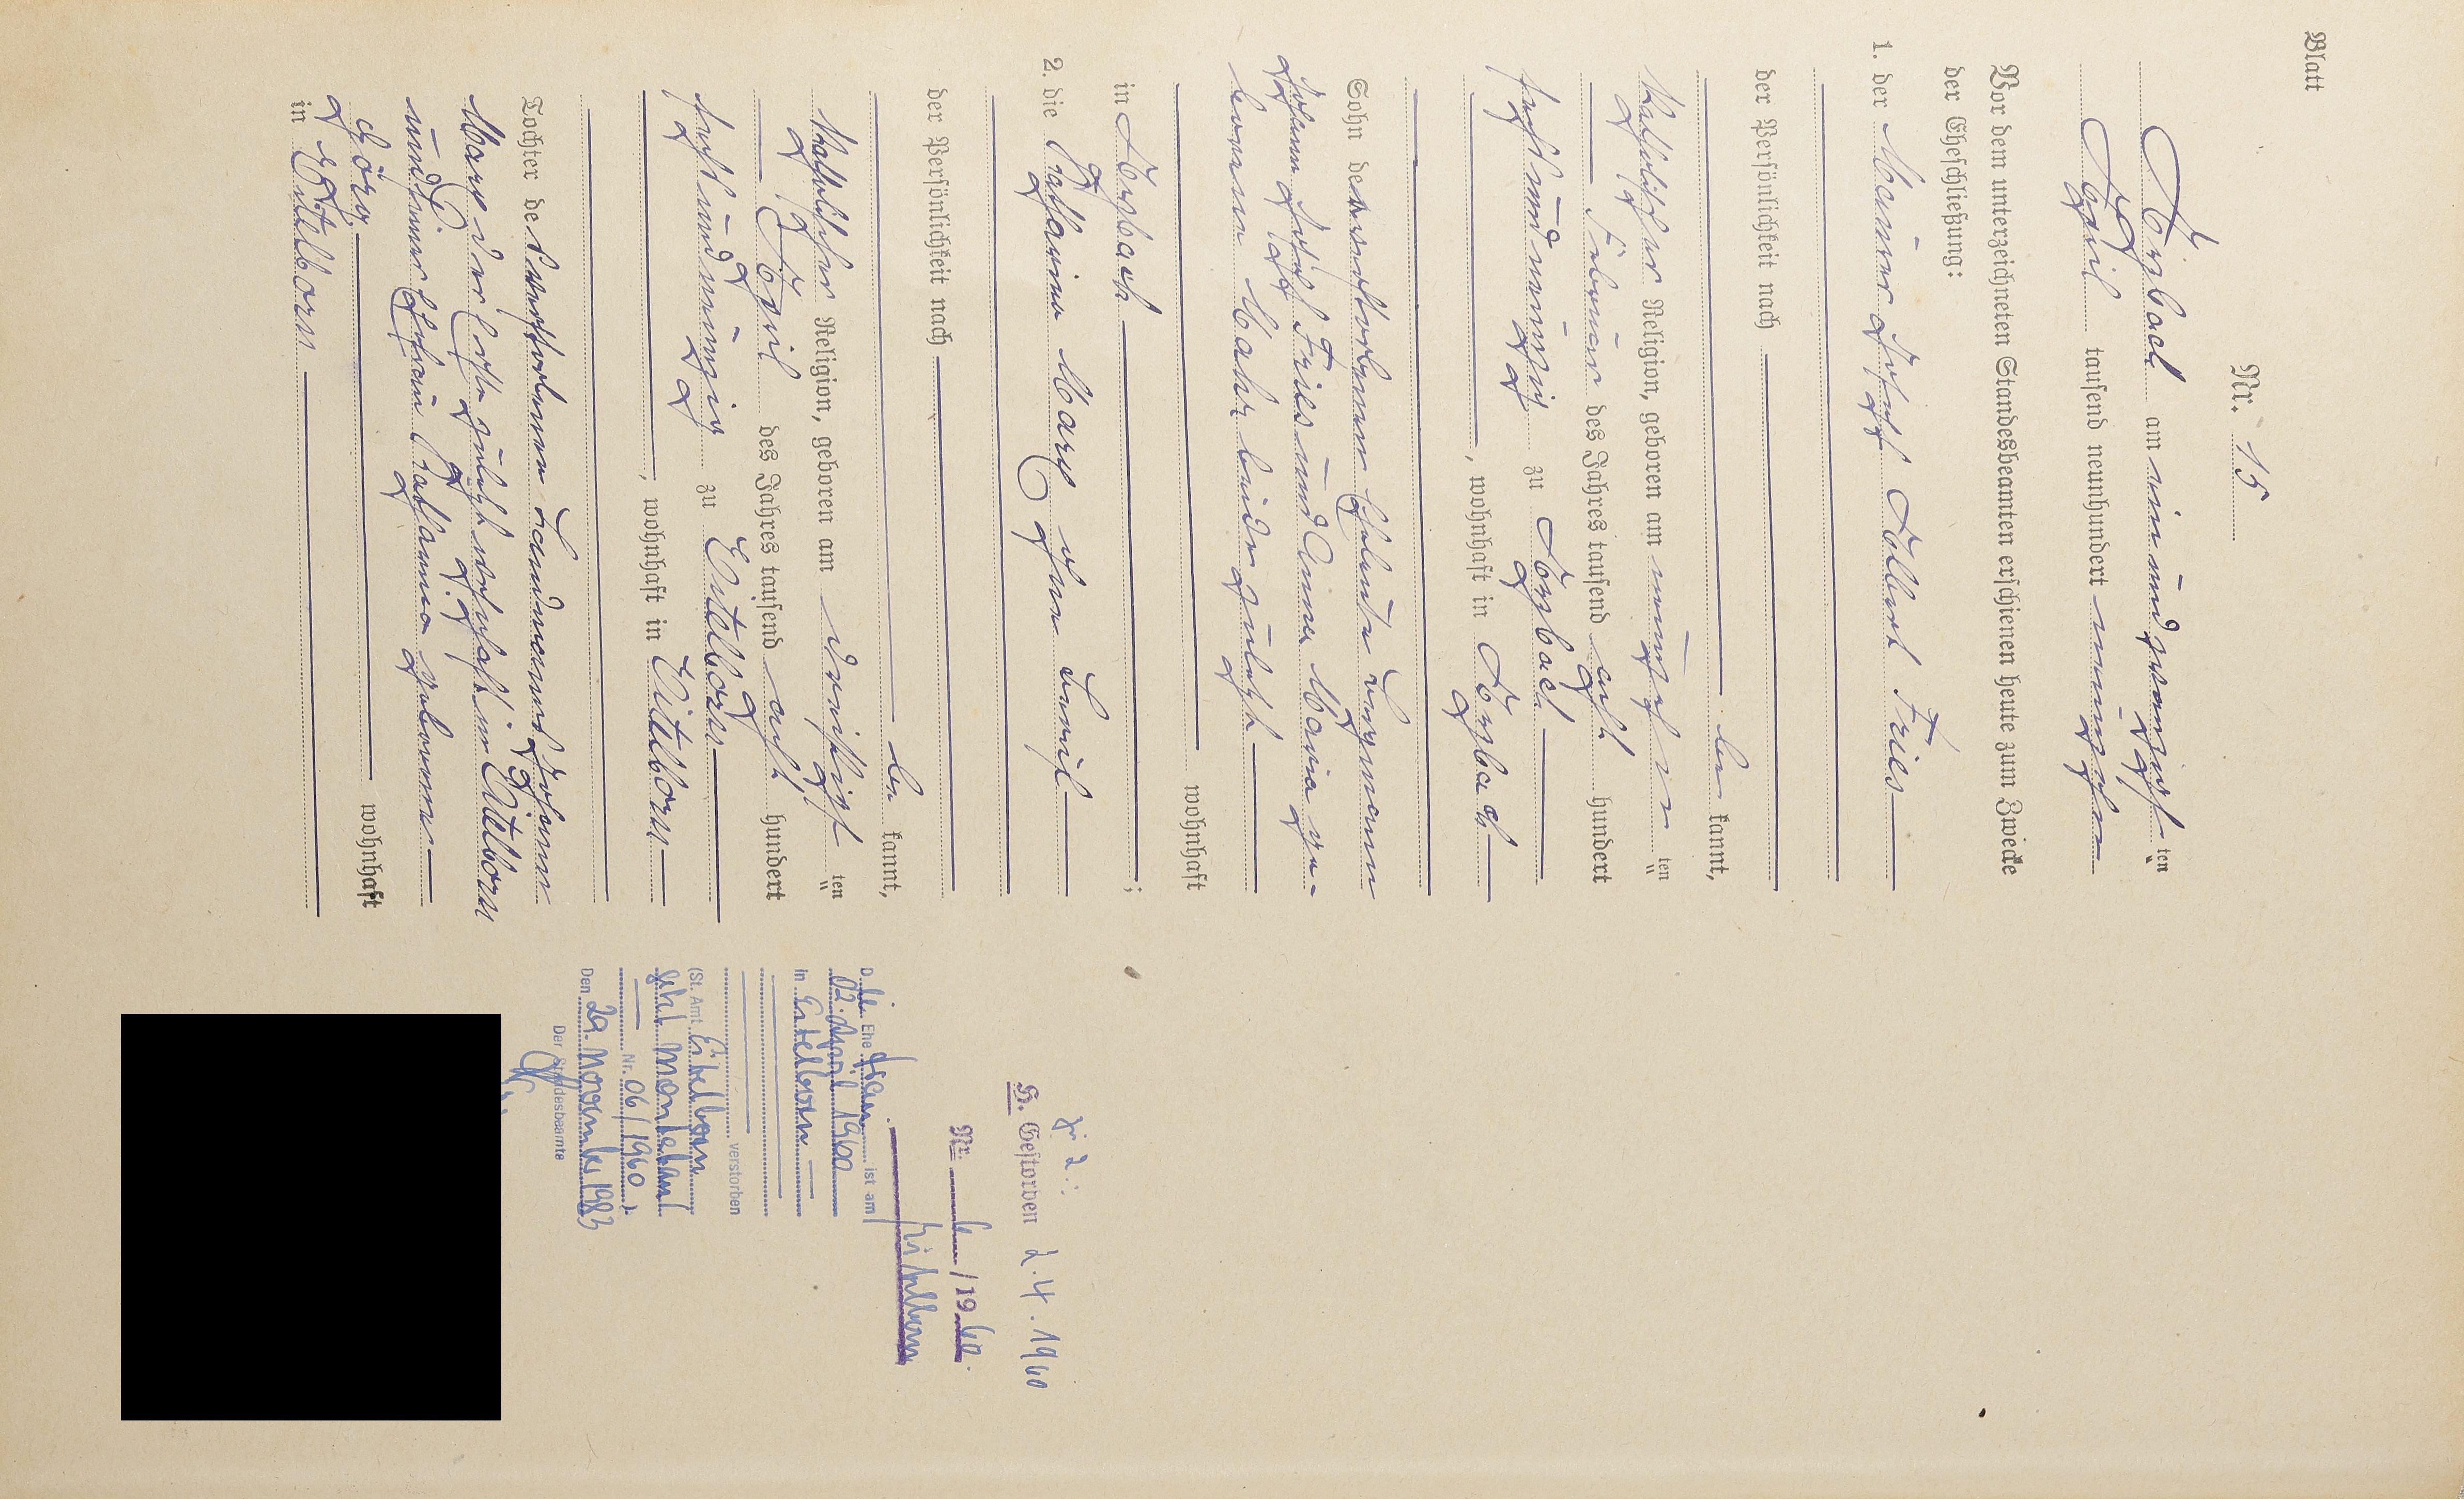 Blatt
Nr. 15
Arzbach am ein und zwanzigsten
April tausend neunhundert neunzehn
Vor dem unterzeichneten Standesbeamten erschienen heute zum Zwecke
der Eheschließung:
1. der Maurer Joseph Albert Fries
der Persönlichkeit nach
be kannt,
katholischer Religion, geboren am neunzehnten
Februar des Jahres tausend acht hundert
sechsundneunzig zu Arzbach
, wohnhaft in Arzbach
Sohn der verstorbenen Eheleute Bergmann
Johann Joseph Fries und Anna Maria ge-
borene Mahr beide zuletzt
wohnhaft
in Arzbach ;
2. die Katharina Marx ohne Beruf
der Persönlichkeit nach
be kannt,
katholischer Religion, geboren am dreißigsten
April des Jahres tausend acht hundert
sechsundneunzig zu Eitelborn
, wohnhaft in Eitelborn
Tochter des verstorbenen Landmannes Johann
Marx der letzte zuletzt wohnhaft in Eitelborn
und seiner Ehefrau Katharina geborenen
wohnhaft
in Eitelborn
zu 2:
H. Gestorben 2.4.1960
Nr. 6 /1960.
Eitelborn
Die Ehefrau ist am
02. April 1960
in Eitelborn
verstorben
(St. Amt Eitelborn
jetzt Montabaur
Nr. 06/1960).
Den 29. November 1983
Der Standesbeamte